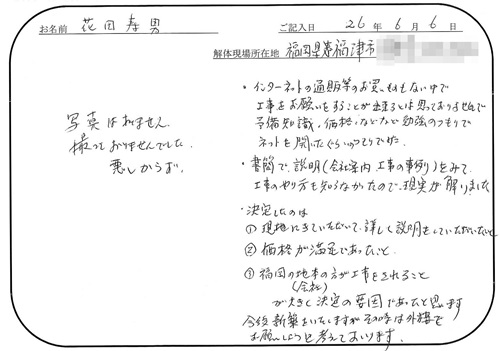 お名前 花田寿男
ご記入日 26年6月6日
解体現場所在地 福岡県福津市
写真はありません。
撮っておりませんでした。
悪しからず。
・インターネットの通販等のお買いものもない中で
工事をお願いをすることが出来るとは思っておりませんで
予備知識、価格、などなど勉強のつもりで
ネットを開いたぐらいのつもりでした。
・書簡で、説明(会社案内、工事の事例)をみて
工事のやり方も知らなかったので、現実が解りました
・決定したのは
①現地にきていただいて、詳しく説明をしていただいたこと
②価格が満足であったこと
③福岡の地本の方が工事をされること
(会社)
が大きく決定の要因であったと思います
今後新築をいたしますがその時は外構も
お願いしようと考えております。